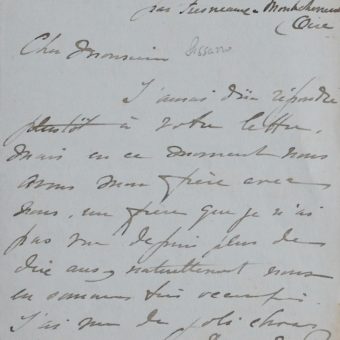 par Fresneaux-Montchevreuil
(Oise
Cher Monsieur
J'aurais dûe répondre
plutôt à votre lettre,
mais en ce moment nous
avons mon frère avec
nous, un frère que je n'ai
pas vue depuis plus de
dix ans, naturellement nous
en sommes très occupés.
J'ai vue de jolis choses